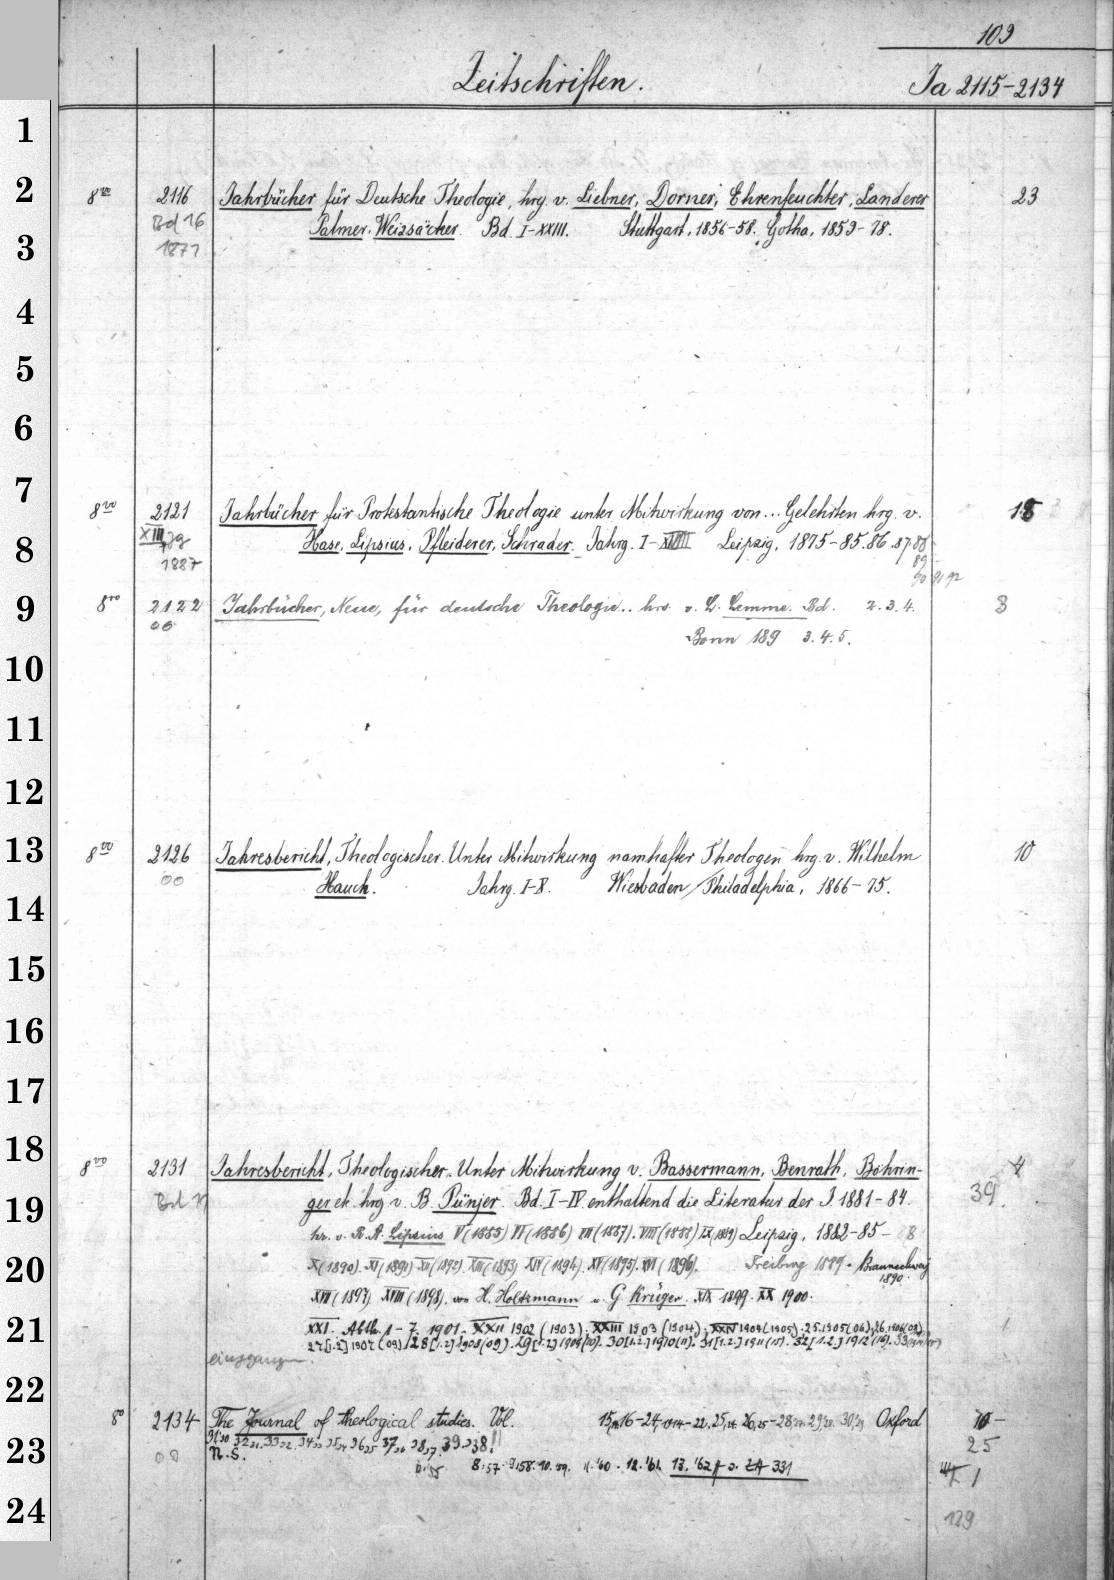 109
Zeitschriften. Ja 2115-2134
1
2 8vo 2116 Jahrbücher für Deutsche Theologie, hrg. v. Liebner, Dorner, Ehrenfeuchter, Landerer 23
Bd 16 Palmer, Weizsäcker. Bd. I-XXIII. Stuttgart, 1856-58. Gotha, 1859-78.
3 1871
4
5
6
7
8vo 2121 Jahrbücher für Protestantische Theologie unter Mitwirkung von... Gelehrten hrg. v. 18
8 XIII Jg Hase, Lipsius, Pfleiderer, Schrader. Jahrg. I-XVIII Leipzig, 1875-85.86.87.88
1887 89
90 91 92
9 8vo 2122 Jahrbücher, Neue, für deutsche Theologie.. hrg. v. L. Lemme. Bd. 2. 3. 4. 3
00 Bonn 189 3. 4. 5.
10
11
12
13 8vo 2126 Jahresbericht, Theologischer. Unter Mitwirkung namhafter Theologen hrg. v. Wilhelm 10
00 Hauck. Jahrg. I-X. Wiesbaden / Philadelphia, 1866-75.
14
15
16
17
18 8vo 2131 Jahresbericht, Theologischer. Unter Mitwirkung v. Bassermann, Benrath, Böhrin- 4
19 Bd ger etc. hrg v. B. Pünjer. Bd. I-IV enthaltend die Literatur der J. 1881-84. 39
hr. v. R. A. Lipsius V (1885) VI (1886) VII (1887). VIII (1888) IX (1889) Leipzig, 1882-85- 8
20 X (1890). XI (1891) XII (1892). XIII (1893) XIV (1894). XV (1895). XVI (1896). Freiburg 1889 - Braunschweig
1890.
XVII (1897) XVIII (1898). von H. Holtzmann u. G. Krüger. XIX 1899. XX 1900.
21 XXI. Abth. 1-7. 1901. XXII 1902 (1903). XXIII 1903 (1904). XXIV 1904 (1905). 25.1905 (06). 26.1906
27 [1.2] 1907 (09) 28 [1.2] 1908 (09). 29 [1.2] 1909 (10). 30 [1.2] 1910 (11). 31 [1.2] 1911 (12). 32 [1.2] 1912 33
eingegangen.
22
8o 2134 The Journal of theological studies. Vol. 15, 16-24, 1914-22. 25, 24 26, 25-28 29 30, 29 Oxford 10
23 00 31,30 32,31. 33,32. 34,33 35,34 36,35 37,36 38,37. 39,38. 25
N. S.
6:55 8:57. 9:58. 10. 59. 11. '60. 12. '61. 13. '62 ZA 331 1
24 129